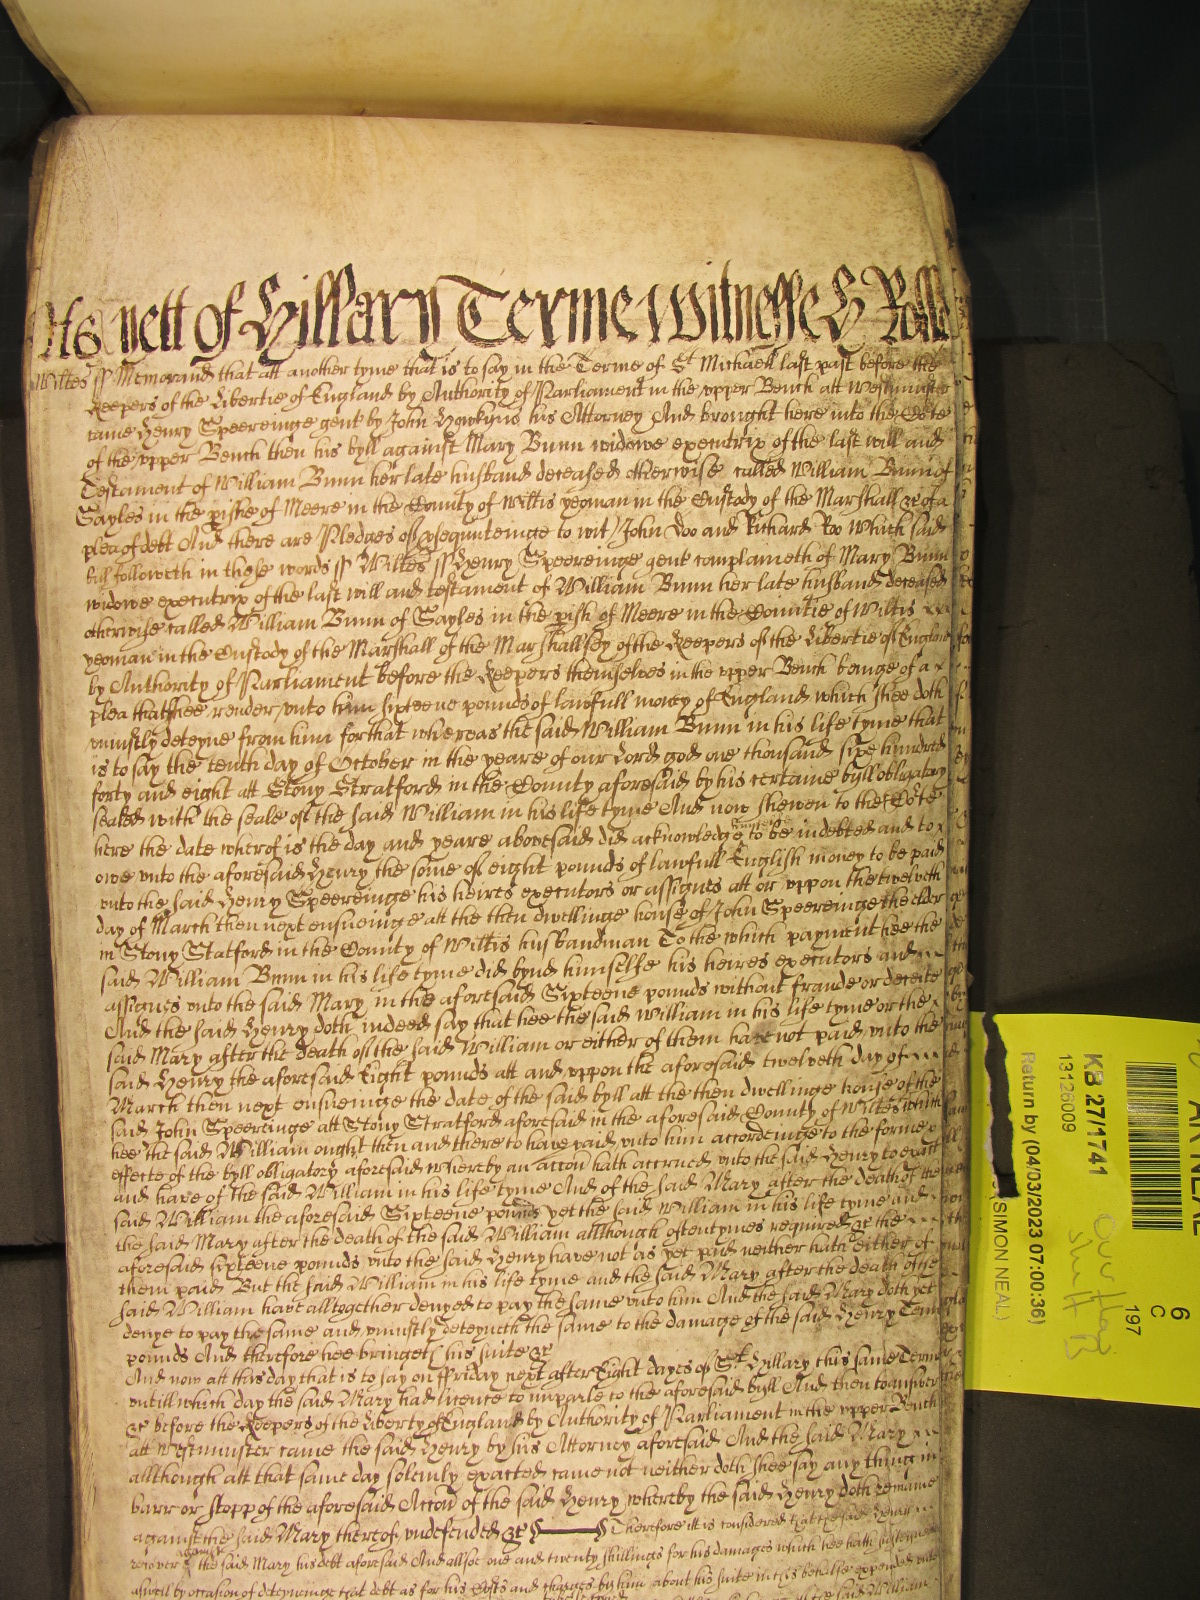 yett of Hillary Terme Witnesse H Rolle
Wiltes ss Memorand that att another tyme that is to say in the Terme of St Michaell last past before the
Keepers of the Libertie of England by Authority of Parliament in the upper Bench att Westminster
came Henry Speereinge gent by John Hawkins his Attorney And brought here into the Corte
of the upper Bench then his byll against Mary Bunn widowe executrix of the last will and
Testament of William Bunn her late husband deceased otherwise called William Bunn of
Gayles in the pishe of Meere in the County of Wiltis yeoman in the Custody of the Marshall &c of a
plea of debt And there are Pledges of psequuteinge to wit John Doo and Richard Roo Which said
bill followeth in these words ss Wiltes ss Henry Speereinge gent complaineth of Mary Bunn
widowe executrix of the last will and testament of William Bunn her late husband deceased
otherwise called William Bunn of Gayles in the pish of Meere in the Countie of Wiltis
yeoman in the Custody of the Marshall of the Marshallsey of the Keepers of the Libertie of England
by Authority of Parliament before the Keepers themselves in the upper Bench beinge of a
plea that shee render unto him sixteene pounds of lawfull money of England which shee doth
uniustly deteyne from him for that whereas the said William Bunn in his life tyme that
is to say the tenth day of October in the yeare of our Lord god one thousand sixe hundred
forty and eight att Stony Stratford in the County aforesaid by his certaine byll obligatory
sealed with the seale of the said William in his life tyme And now shewen to the Corte
here the date wherof is the day and yeare abovesaid did acknowledge himselfe to be indebted and to
owe unto the aforesaid Henry the some of eight pounds of lawfull English money to be paid
unto the said Henry Speereinge his heires executors or assignes att or uppon the twelveth
day of March then next ensueinge att the then dwellinge house of John Speereinge the elder
in Stony Statford in the County of Wiltis husbandman To the which payment hee the
said William Bunn in his life tyme did bynd himselfe his heires executors and
assignes unto the said Mary in the aforesaid Sixteene pounds without fraude or deceite
And the said Henry doth indeed say that hee the said William in his life tyme or the
said Mary after the death of the said William or either of them have not paid unto the
said Henry the aforesaid Eight pounds att and uppon the aforesaid twelveth day of
March then next ensueinge the date of the said byll att the then dwellinge house of the
said John Speereinge att Stony Stratford aforesaid in the aforesaid County of Wiltes which
hee the said William ought then and there to have paid unto him accordeinge to the forme &
effecte of the byll obligatory aforesaid whereby an accon hath accrued unto the said Henry to exact
and have of the said William in his life tyme And of the said Mary after the death of the
said William the aforesaid Sixteene pounds yet the said William in his life tyme and
the said Mary after the death of the said William allthough oftentymes required &c the
aforesaid sixteene pounds unto the said Henry have not as yet paid neither hath either of
them paid But the said William in his life tyme and the said Mary after the death of the
said William have alltogether denyed to pay the same unto him And the said Mary doth yet
denye to pay the same and uniustly deteyneth the same to the damage of the said Henry Tenn
pounds And therefore hee bringeth his suite &c
And now att this day that is to say on ffriday next after Eight dayes of St Hillary this same Terme
untill which day the said Mary had licence to imparle to the aforesaid byll And then to answer
&c before the Keepers of the Liberty of England by Authority of Parliament in the upper Bench
att Westminster came the said Henry by his Attorney aforesaid And the said Mary
allthough att that same day solemly exacted came not neither doth shee say any thing in
barr or stopp of the aforesaid Accon of the said Henry whereby the said Henry doth remaine
against the said Mary therof undefended &c Therefore itt is considered that the said Henry
recover against the said Mary his debt aforesaid And allsoe one and twenty shillings for his damages which hee hath susteyned
aswell by occasion of deteyneinge that debt as for his Costs and charges by him about his suite in this behalfe expended
KB 27/1741
13126009
Return by (04/03/2023 07:00:36)
(SIMON NEAL)
6
C
197